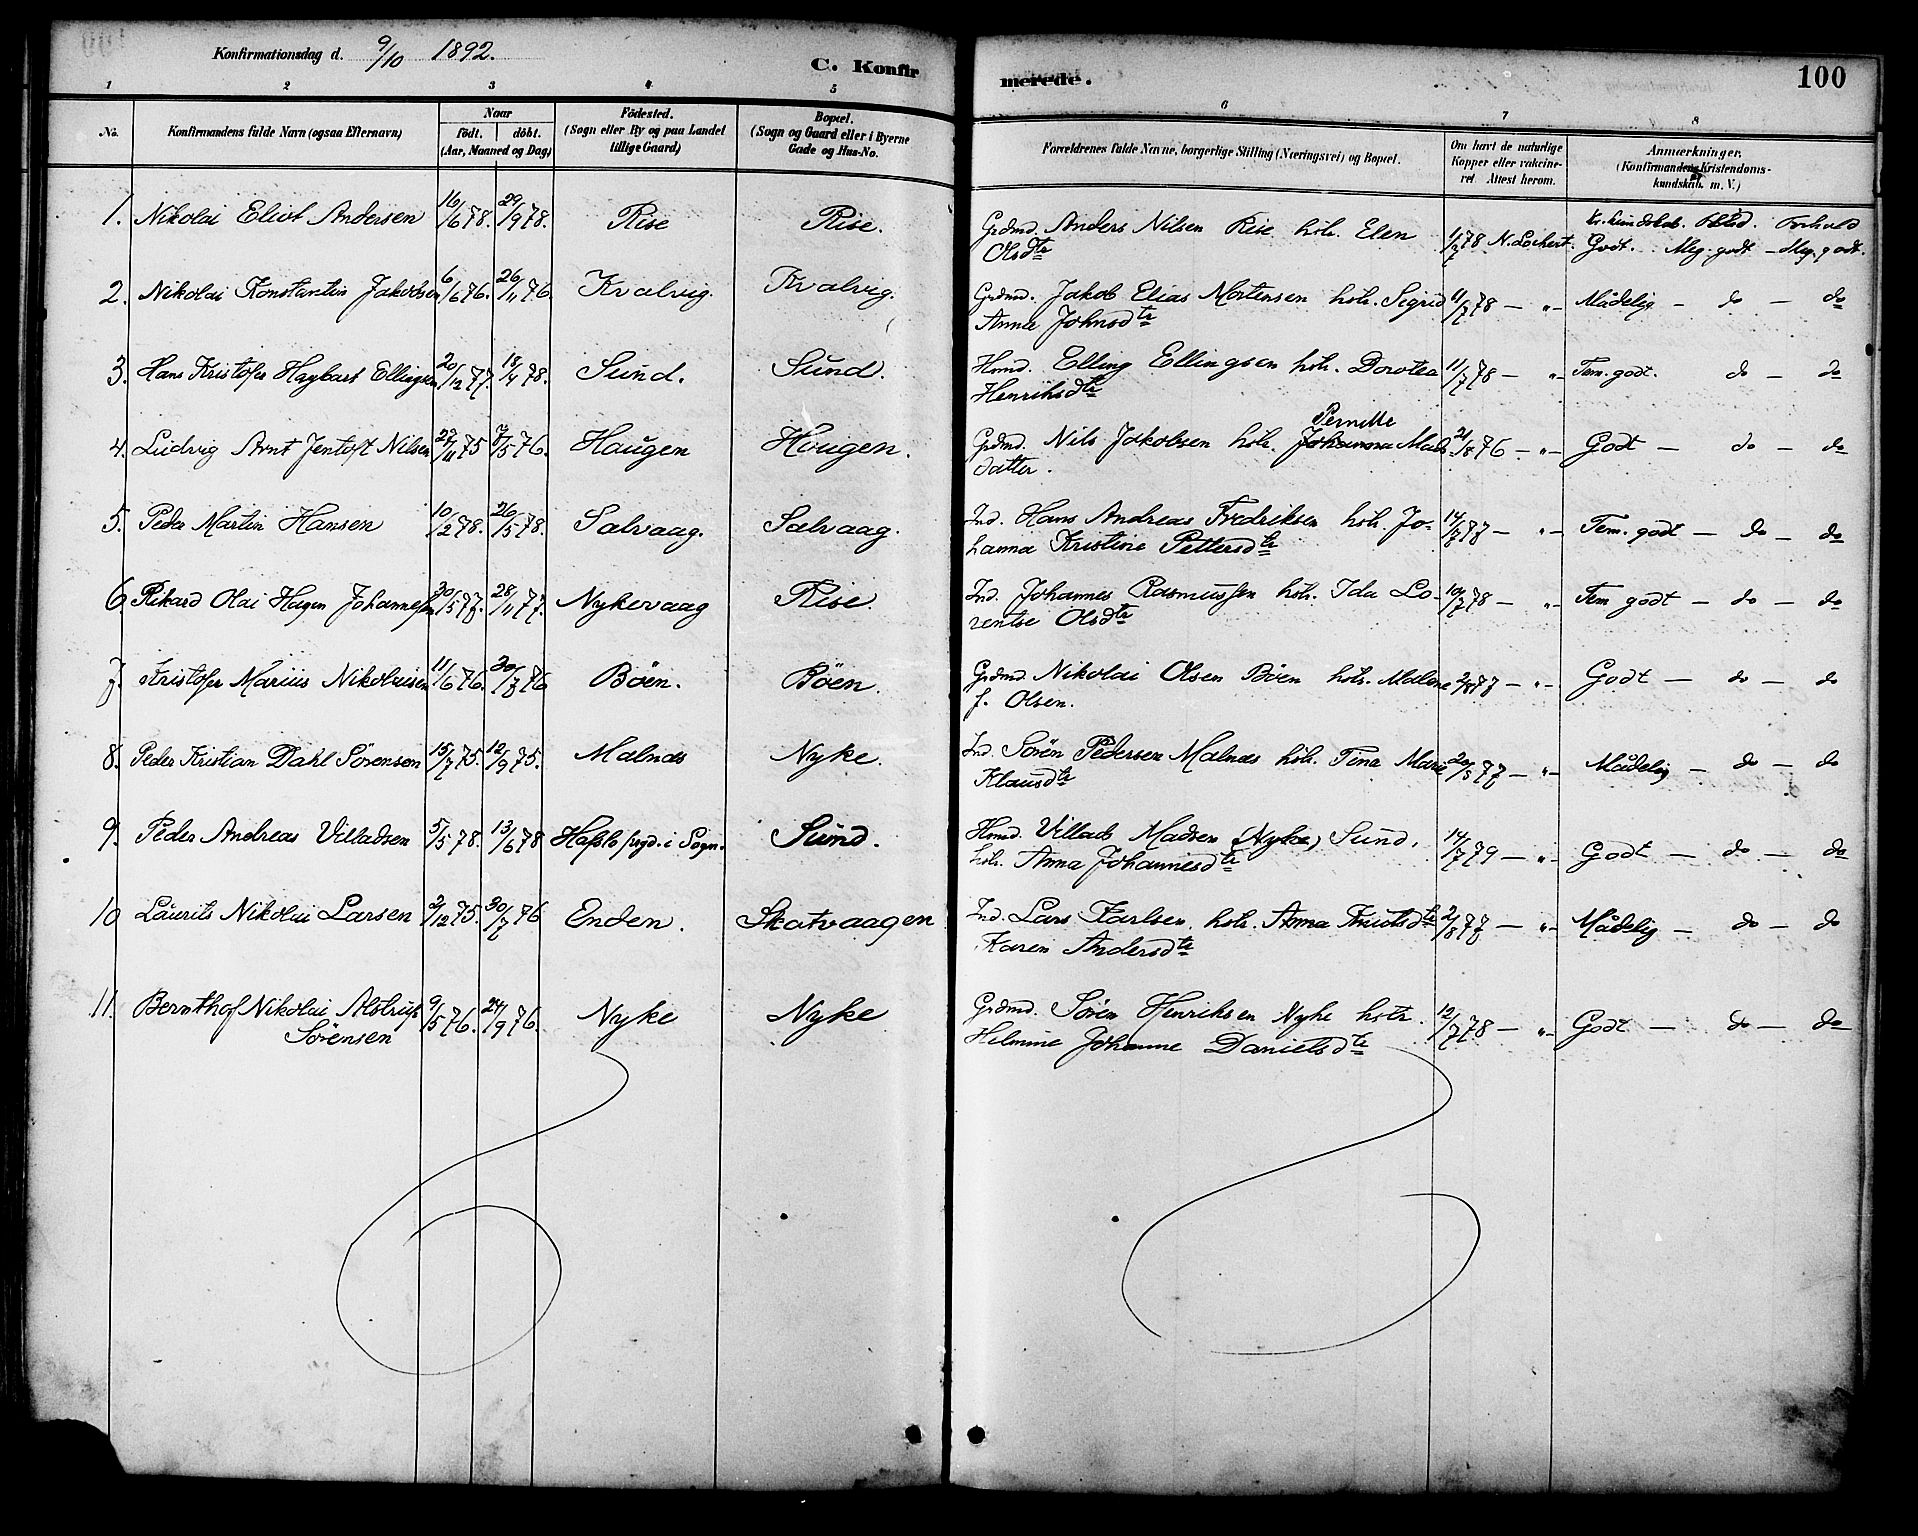 Konfirmationsdag d. 9/10 1892.
C. Konfirmerede.
100
1 2 3 4 5 6 7 8
No.
Konfirmandens fulde Navn (ogsaa Efternavn)
Naar
født. døbt.
(Aar, Maaned og Dag)
Fødested.
(Sogn eller By og paa Landet
tillige Gaard)
Bopæl.
(Sogn og Gaard eller i Byerne
Gade og Hus-No.
Forældrenes fulde Navne, borgerlige Stilling (Næringsvei) og Bopæl.
Om havt de naturlige
Kopper eller vakcine-
ret. Attest herom.
Anmærkninger.
(Konfirmandens Kristendoms-
kundskab. m. V.)
Kr. kundskab. Flid. Forhold
1. Nikolai Eliot Andersen 16/6 78. 29/9 78. Rise Rise. Grdmd. Anders Nilsen Rise hstr. Elen 1/7 78 N. Lockert. Godt. Meg. godt - Meg. godt.
Olsdtr
2. Nikolai Konstantin Jakobsen 6/6 76. 26/11 76. Kvalvig. Kvalvig. Grdmd. Jakob Elias Mortensen hstr. Sigrid 11/7 78 — " — Mådelig — do — do
Anna Johnsdtr
3. Hans Kristofer Hagbart Ellingsen 20/12 77. 18/4 78. Sund. Sund. Hmd. Elling Ellingsen hstr. Dorotea 11/7 78 — " Tem. godt. do — do
Henriksdtr
Pernille
4. Ludvig Arnt Jentoft Nilsen 27/11 75 7/5 76. Haugen Hougen. Grdmd. Nils Jakobsen hstr. Johanna Mads 21/8 76 — " — Godt — do — do
datter.
5. Peder Martin Hansen 10/2 78. 26/5 78. Salvaag. Salvaag. Ind. Hans Andreas Fredriksen hstr. Jo- 14/7 77 — " — Tem. godt — do — do
hanna Kristine Pettersdtr
6 Rikard Olai Hagen Johannessen 30/5 77. 28/11 77. Nykevaag Rise. Ind. Johannes Rasmussen hstr. Ida Lo- 10/7 78 — " Tem godt — do — do
rentse Olsdtr
7. Kristofer Marius Nikolaisen 11/6 76. 30/7 76 Böen. Böen. Grdmd. Nikolai Olsen Böen hstr. Malene 2/8 77 — " — Godt — do — do
f. Olsen.
8. Peder Kristian Dahl Sörensen 15/7 75. 12/9 75. Malnæs Nyke. Ind. Sören Pedersen Malnæs hstr. Tina Marie 20/5 77 — " — Mådelig — do — do
Klausdtr
9. Peder Andreas Villadsen 5/5 78. 13/6 78 Hafslo prgd. i Sogn. Sund. Hmd. Villads Madsen (Nyke) Sund, 14/7 79 — " — Godt — do — do
hstr. Anna Johannesdtr
10 Laurits Nikolai Larsen 2/12 75. 30/7 76 Enden. Skotvaagen Ind. Lars Karlsen hstr. Anna Knutsdtr 2/8 77 — " — Mådelig — do — do
Karen Andersdtr
11. Bernthof Nikolai Alstrup 9/5 76. 24/9 76. Nyke Nyke Grdmd. Sören Henriksen Nyke hstr. 12/7 78 — " — Godt — do — do
Sörensen Helmine Johanne Danielsdtr